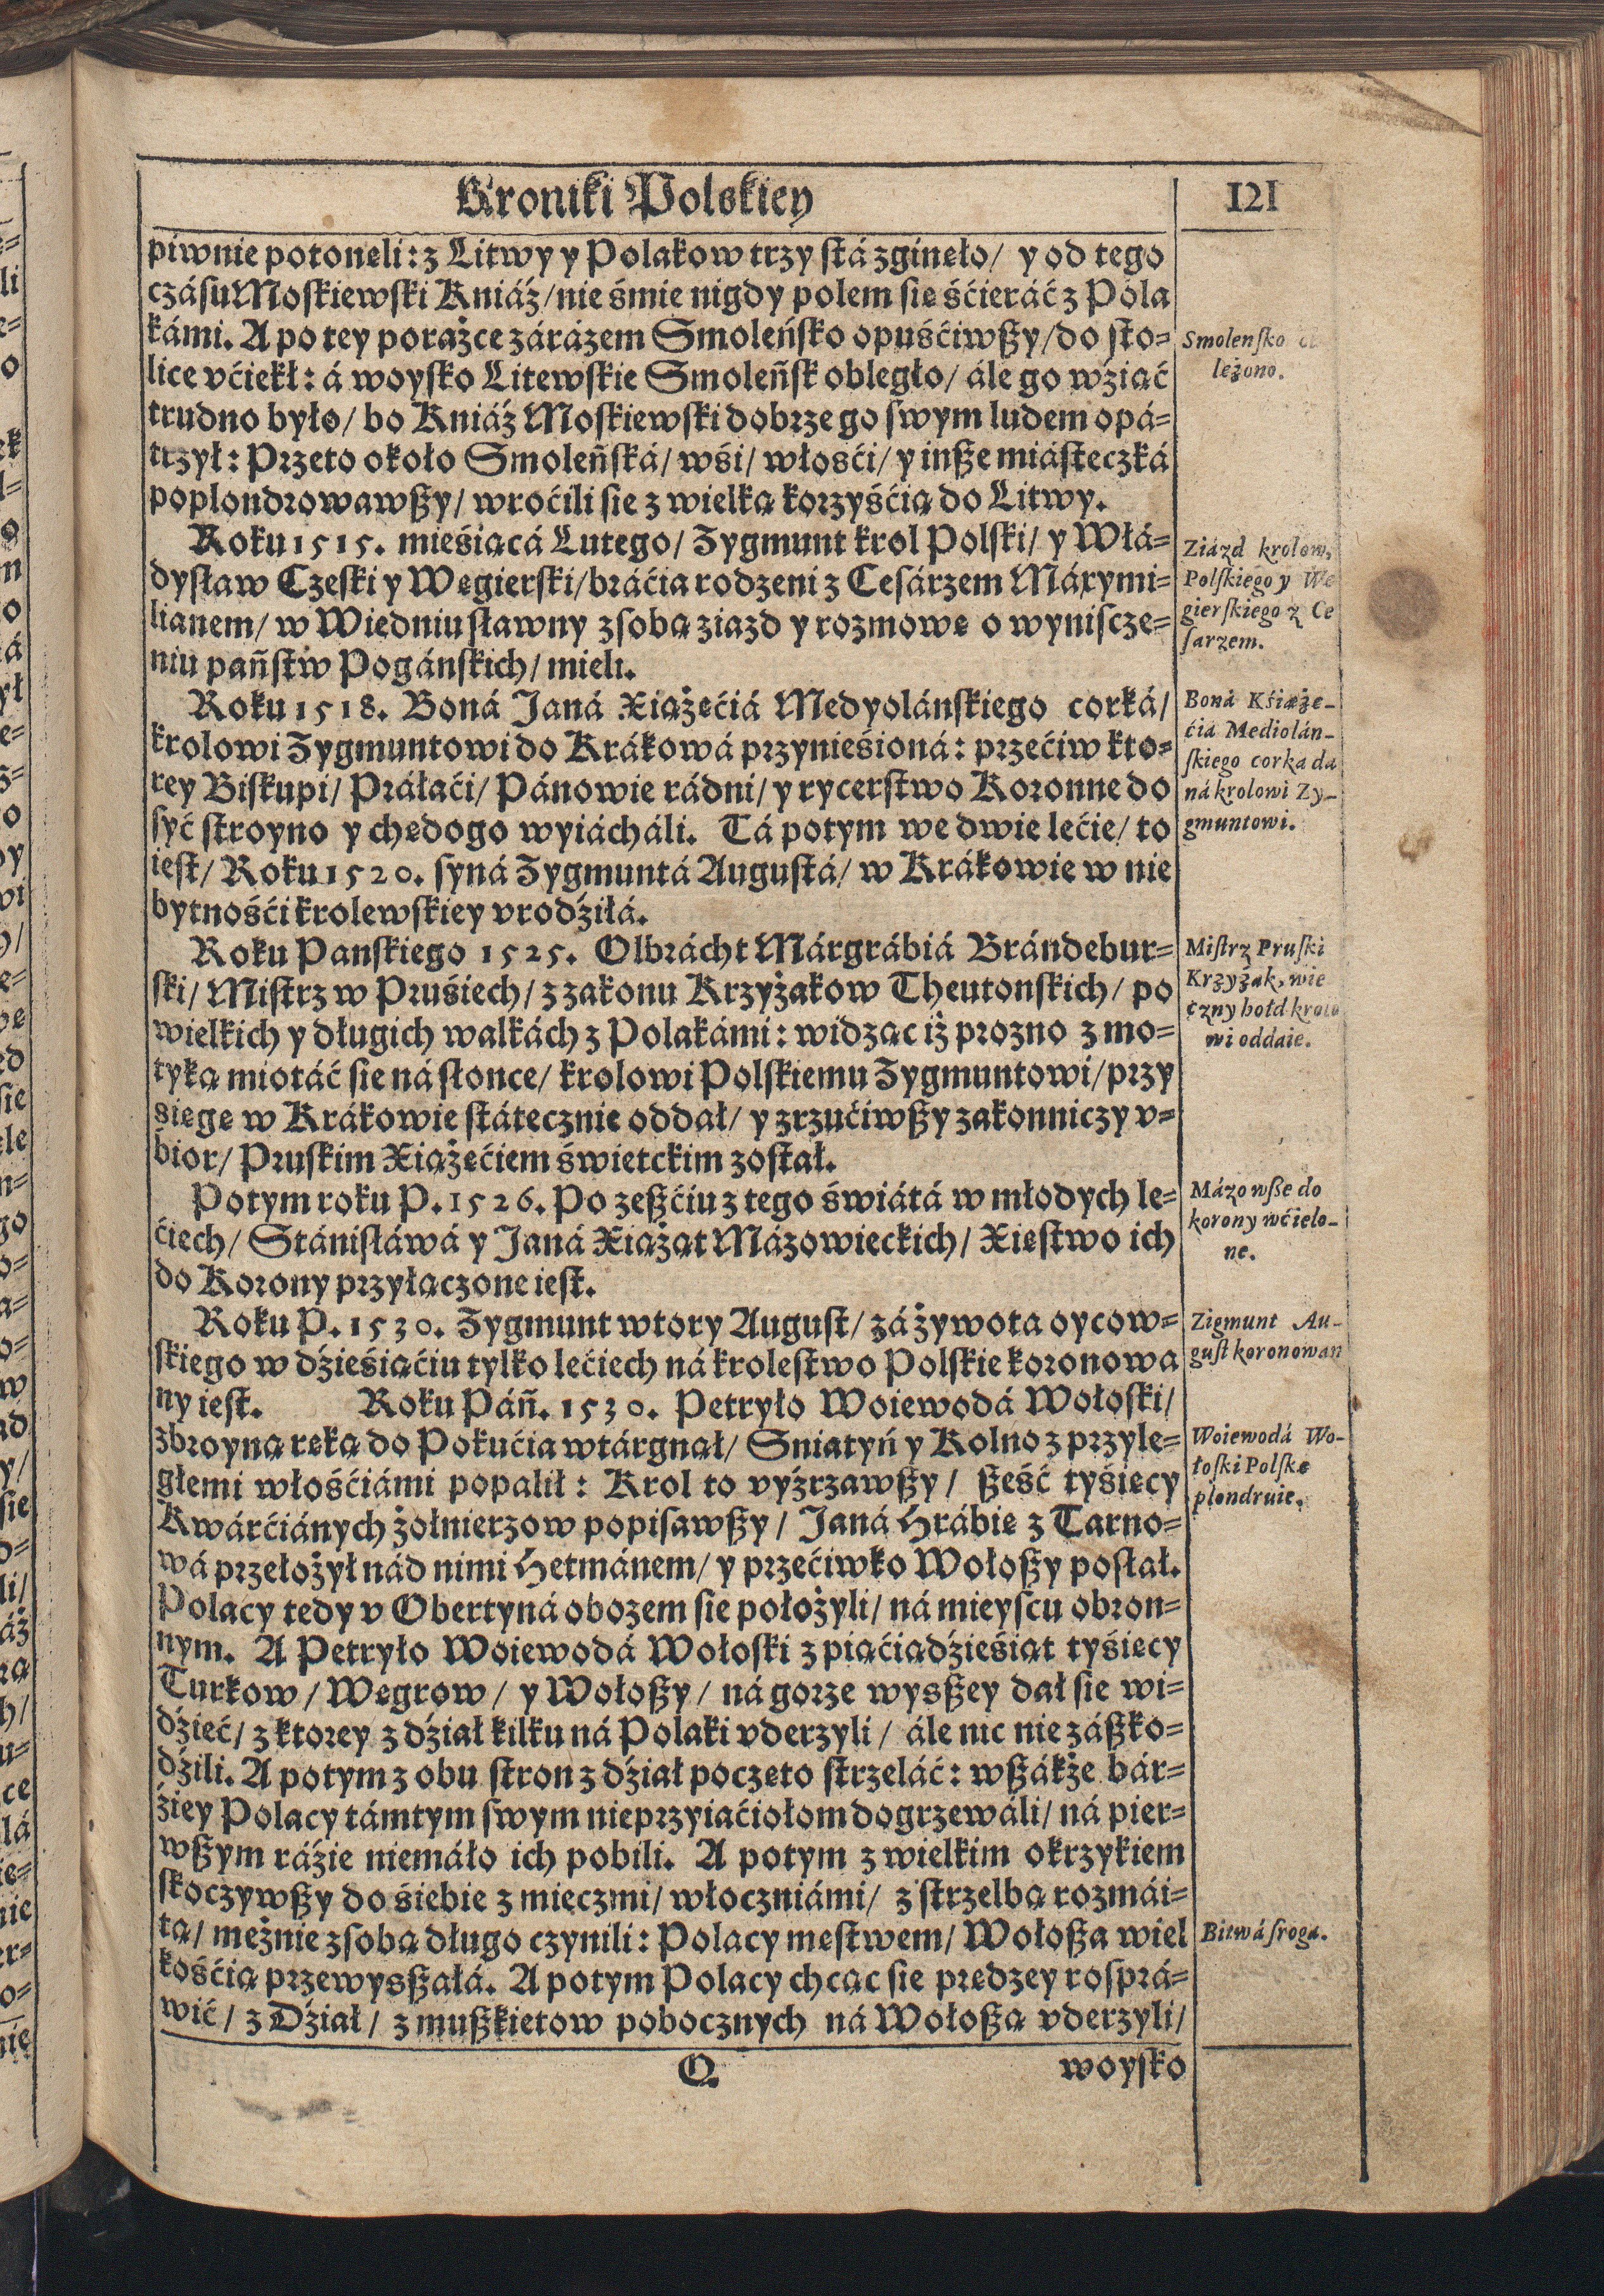 Kroniki Polskiey
121
piwnie potoneli: z Litwy y Polakow trzy stá zgineło/ y od tego
czásu Moskiewski Kniáź/ nie śmie nigdy polem sie śćieráć z Pola
kámi. A po tey porażce zárázem Smoleńsko opuśćiwszy/ do sto-
lice vćiekł: á woysko Litewskie Smoleńsk obległo/ ále go wźiąć
trudno było/ bo Kniáź Moskiewski dobrze go swym ludem opá-
trzył: Przeto około Smoleńská/ wśi/ włosći/ y insze miásteczká
poplondrowawszy/ wroćili sie z wielką korzyśćią do Litwy.
Smolensko
leżono.
Roku 1515. mieśiącá Lutego/ Zygmunt krol Polski/ y Włá-
dysław Czeski y Węgierski/ bráćia rodzeni z Cesárzem Máxymi-
lianem/ w Wiedniu sławny z sobą ziazd y rozmowę o wynisczę-
niu państw Pogánskich/ mieli.
Ziázd krolow,
Polskiego y We
gierskiego z Ce
sarzem.
Roku 1518. Boná Janá Xiążęćiá Medyolánskiego corká/
krolowi Zygmuntowi do Krákowá przynieśioná: przećiw kto-
rey Biskupi/ Práłaći/ Pánowie rádni/ y rycerstwo Koronne do
syć stroyno y chędogo wyiácháli. Tá potym we dwie lećie/ to
iest/ Roku 1520. syná Zygmuntá Augustá/ w Krákowie w nie
bytnośći krolewskiey vrodźiłá.
Boná Kśiąże-
ćiá Mediolán-
skiego corka da
ná krolowi Zy-
gmuntowi.
Roku Panskiego 1525. Olbrácht Márgrábiá Brándebur-
ski/ Mistrz w Pruśiech/ z zakonu Krzyżakow Theutonskich/ po
wielkich y długich walkách z Polakámi: widząc iż prozno z mo-
tyką miotáć sie ná słonce/ krolowi Polskiemu Zygmuntowi/ przy
sięgę w Krákowie státecznie oddał/ y zrzućiwszy zakonniczy v-
bior/ Pruskim Xiążęćiem świetckim został.
Mistrz Pruski
Krzyżak, wie
czny hołd krolo
wi oddaie.
Potym roku P. 1526. Po zeszćiu z tego świátá w młodych le-
ćiech/ Stánisłáwá y Janá Xiążąt Mázowieckich/ Xięstwo ich
do Korony przyłączone iest.
Mázowsze do
korony wćielo-
ne.
Roku P. 1530. Zygmunt wtory August/ zá żywota oycow-
skiego w dźieśiąćiu tylko lećiech ná krolestwo Polskie koronowa
ny iest. Roku Páń. 1530. Petryło Woiewodá Wołoski/
zbroyną ręką do Pokućia wtárgnął/ Sniatyń y Kolno z przyle-
głemi włośćiámi popalił: Krol to vyźrzawszy/ sześć tyśięcy
Kwárćiánych żołnierzow popisawszy/ Janá Hrábię z Tarno-
wá przełożył nád nimi Hetmánem/ y przećiwko Wołoszy posłał.
Polacy tedy v Obertyná obozem sie położyli/ ná mieyscu obron-
nym. A Petryło Woiewodá Wołoski z piąćiądźieśiąt tyśięcy
Turkow/ Węgrow/ y Wołoszy/ ná gorze wyszszey dał sie wi-
dźieć/ z ktorey z dźiał kilku ná Polaki vderzyli/ ále nic nie zászko-
dźili. A potym z obu stron z dźiał poczęto strzeláć: wszákże bár-
źiey Polacy támtym swym nieprzyiaćiołom dogrzewáli/ ná pier-
wszym ráźie niemáło ich pobili. A potym z wielkim okrzykiem
skoczywszy do śiebie z mieczmi/ włoczniámi/ z strzelbą rozmái-
tą/ mężnie z sobą długo czynili: Polacy męstwem/ Wołosza wiel
kośćią przewyszszałá. A potym Polacy chcąc sie prędzey rosprá-
wić/ z Dźiał/ z muszkietow pobocznych ná Wołoszą vderzyli/
Zigmunt Au-
gust koronowan
Woiewodá Wo-
łoski Polskę
plondruie.
Bitwá sroga.
Q
woysko